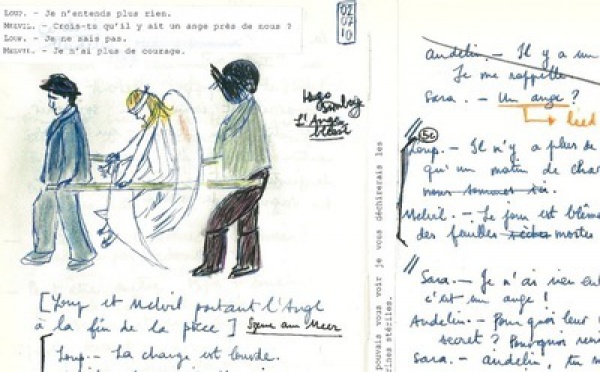 LOUP. - Je n'entends plus rien.
MELVIL. - Crois-tu qu'il y ait un ange près de nous ?
LOUP. - Je ne sais pas.
MELVIL. - Je n'ai plus de courage.
02
07
10
Hugo
Simberg
L'Ange
blessé
[Loup et Melvil portant l'Ange
à la fin de la pièce] Scène au Meer
Loup. - La charge est lourde.
Andelin. - Il y a un
Je me rappelle
Sara. - Un ange ?
Lied
5c
Loup. - Il n'y a plus de
qu'un matin de
nous sommes
Melvil. - Le jour est blême
des feuilles sèches mortes
Sara. - Je n'ai rien
c'est un ange !
Andelin. - Pourquoi leur
secret ? Pourquoi
Sara. - andelin, tu
pouvais vous voir je vous déchirerais les
rines stériles.